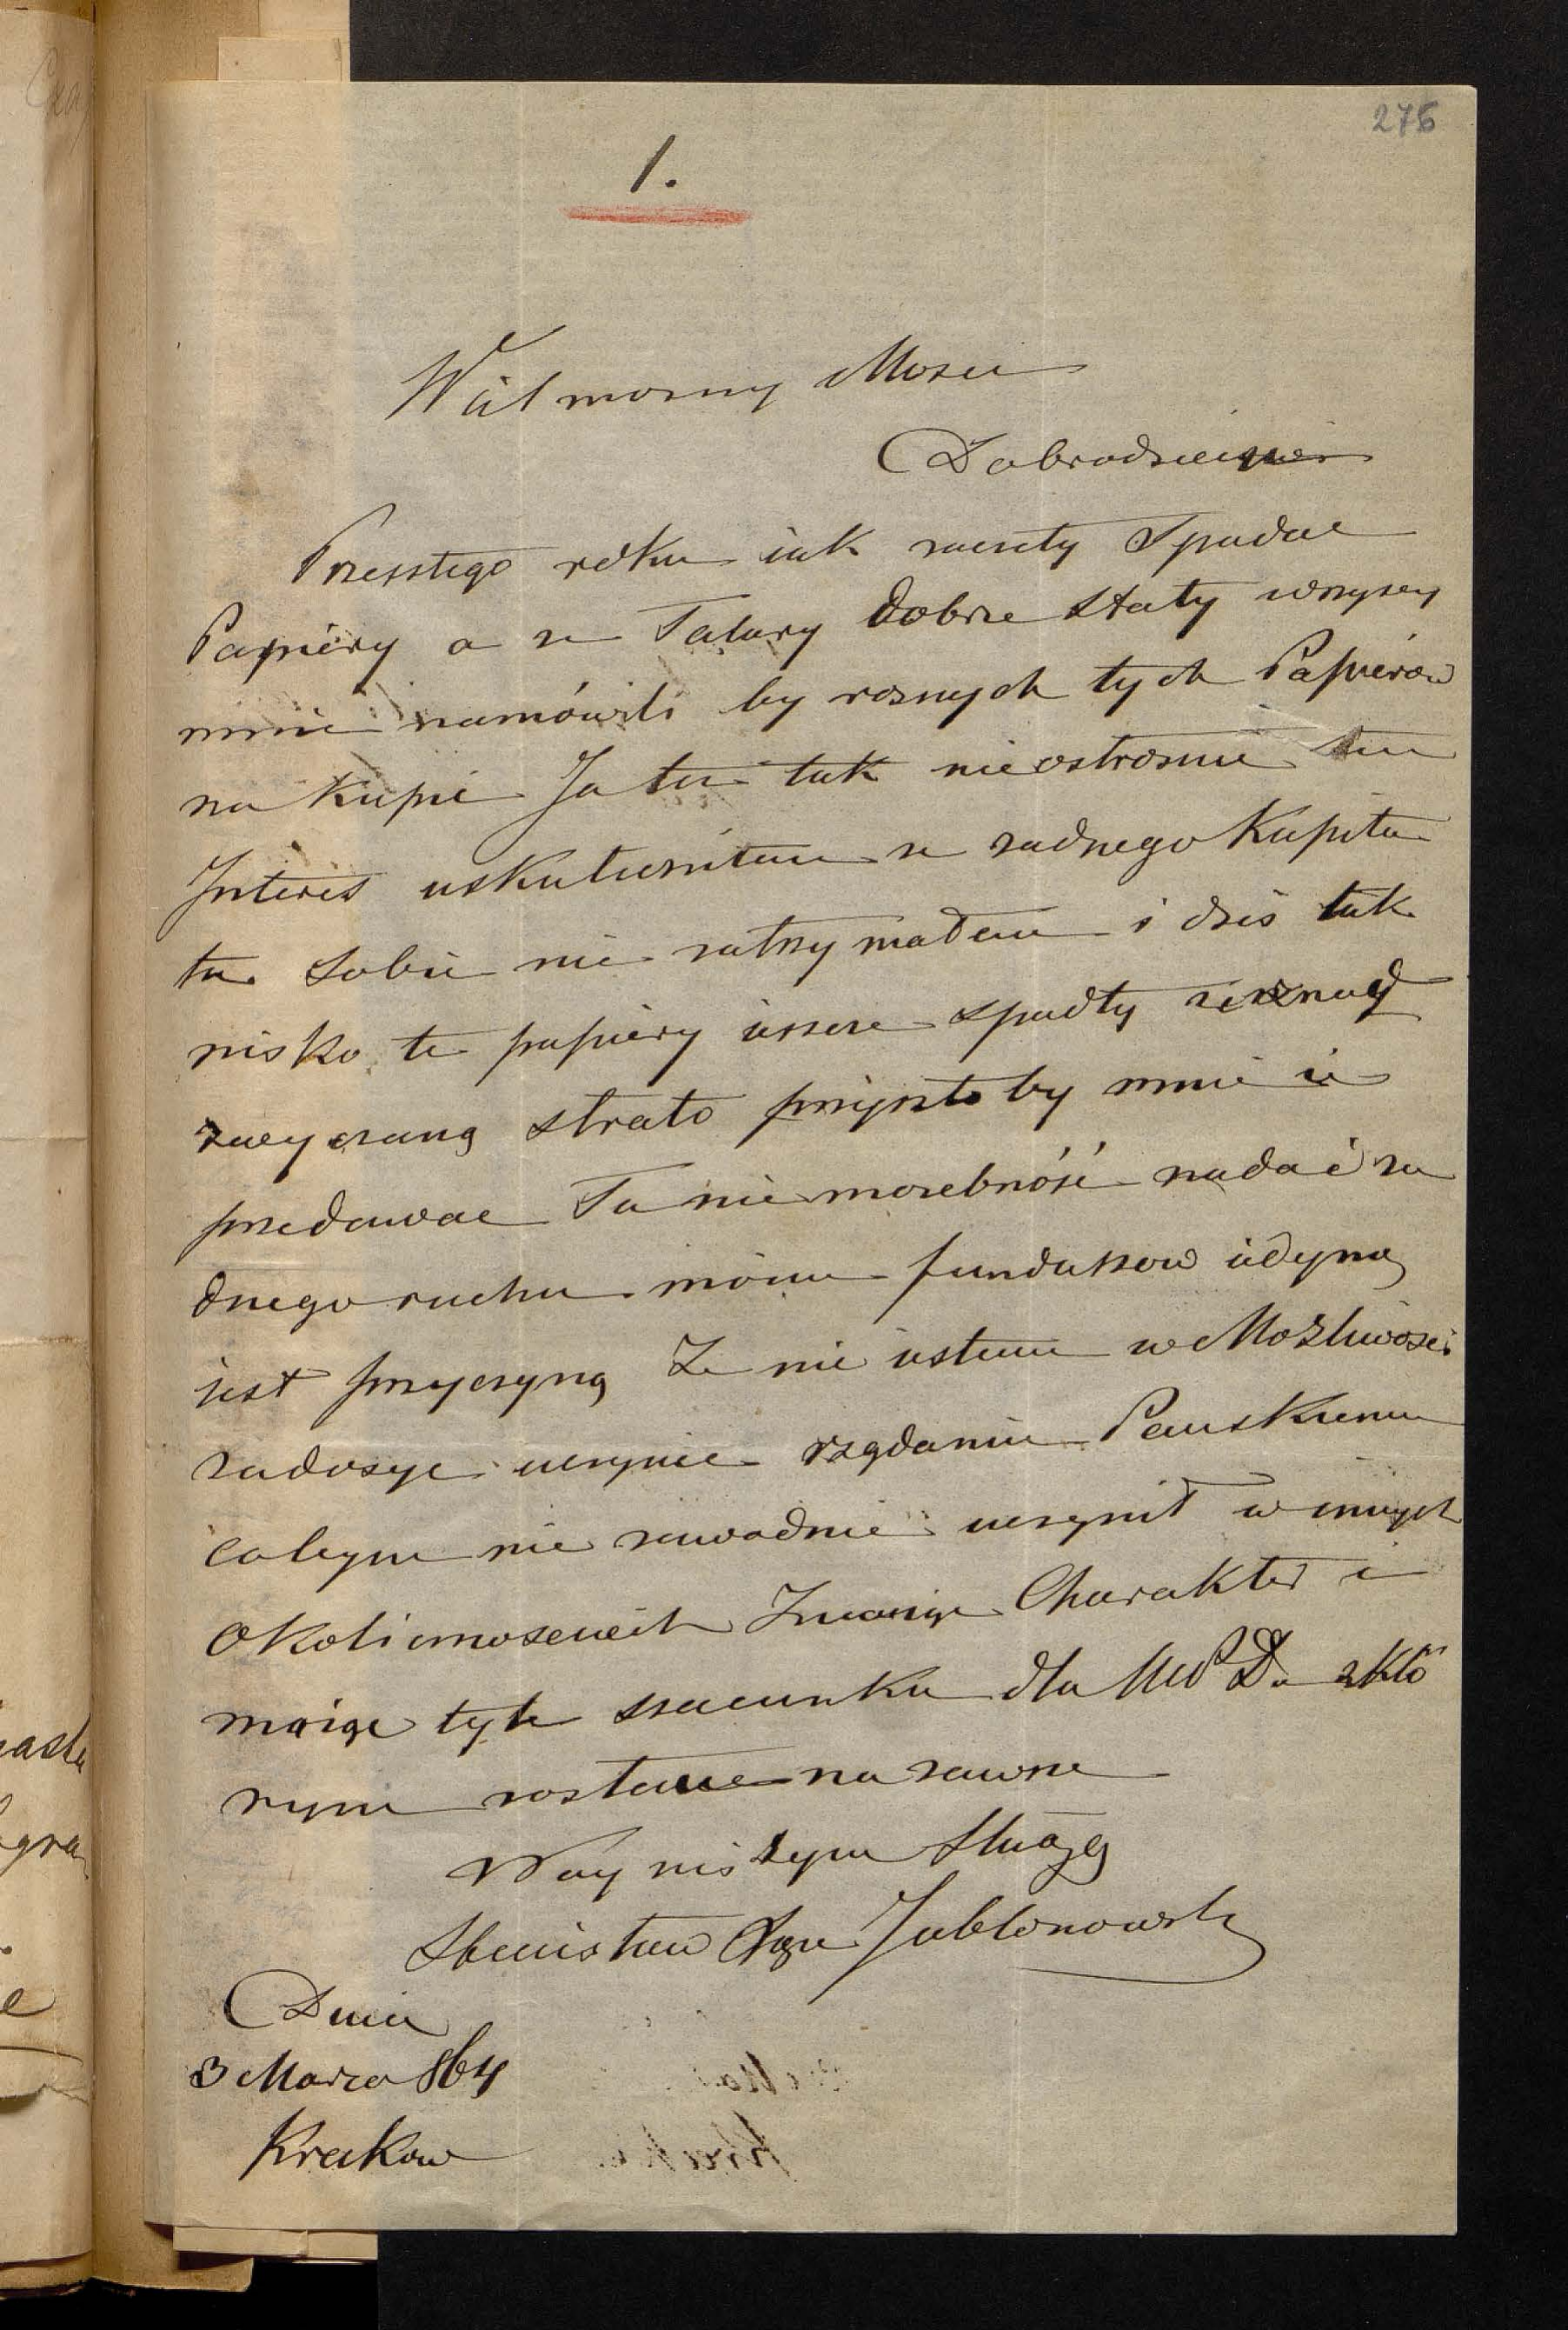 276
1.
Wiel mozny Mosci
Dobrodzieiu
Przesłego roku iak zaczeły Spadac
Papiéry a ze Talary dobrze stały wszyscy
mnie namówili by roznych tych Papiérow
na kupić Ja też tak nieostroznie ten
Interes uskuteczniłem ze zadnego Kapita
łu sobie nie zatrzymałem i dzis tak
nisko te papiéry ieszcze spadły ze z nad
zwyczaną strato przyszło by mnie ie
przedawac Ta nie mozebność nadać ża
dnego ruchu moim funduszow iedyną
iest przyczyną Ze nie iestem w Możliwosci
zadosyc uczynic rządaniu Panskiemu
cobym nie zawodnie uczynił w innych
okolicznosciach Znaiąc Charakter i
maiąc tyle szacunku dla WP D. z któ
rym zostaie na zawsze
Nay niszym Sługą
Stanisław Xże Jabłonowski
Dnia
3 Marca 864
Krakow